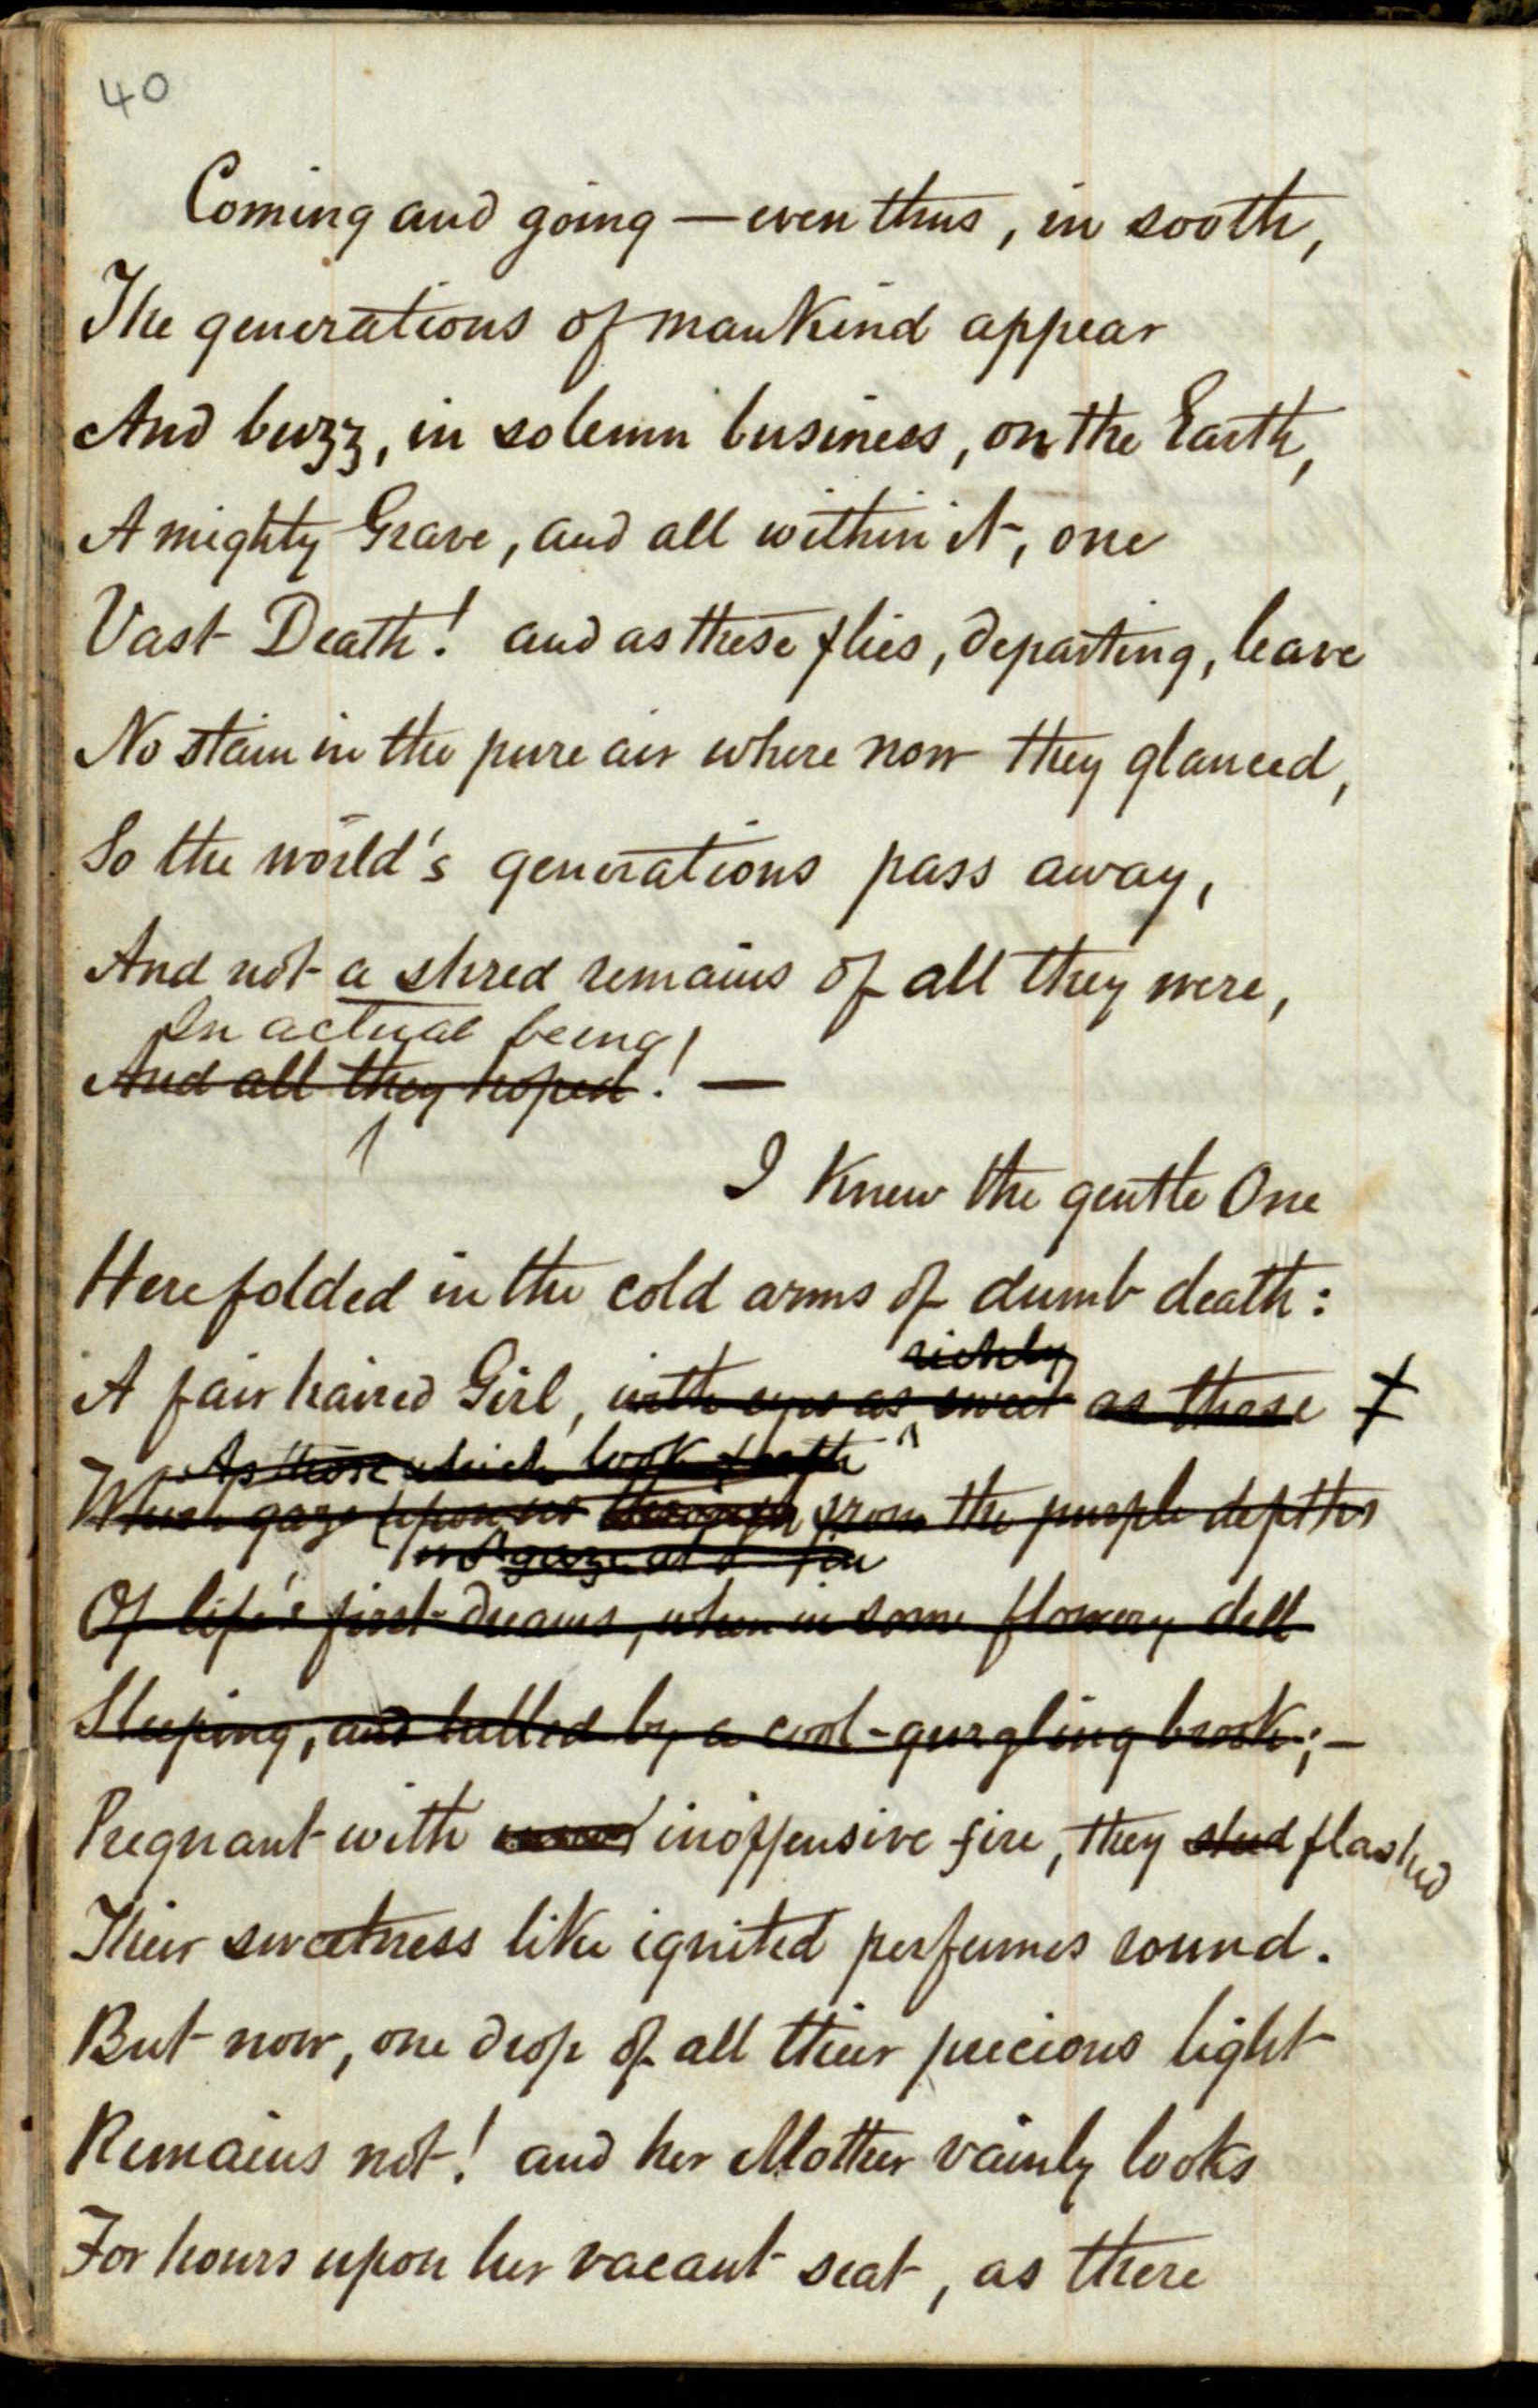 40
Coming and going — even thus, in sooth,
The generations of mankind appear
And buzz, in solemn business, on the Earth,
A mighty Grave, and all within it, one
Vast Death! and as these flies, departing, leave
No stain in the pure air where now they glanced,
So the world's generations pass away,
And not a shred remains of all they were,
In actual being!
And all they hoped! —
I knew the gentle One
Here folded in the cold arms of dumb death:
richly
A fair haired Girl, with eyes as sweet as those
As those which look forth
Which gaze upon us through from the purple depths
gaze at
Of life's first dreams, when in some flowery dell
Sleeping, and lulled by a cool-gurgling brook; —
Pregnant with inoffensive fire, they shed flashed
Their sweetness like ignited perfumes round.
But now, one drop of all their precious light
Remains not! and her Mother vainly looks
For hours upon her vacant seat, as there